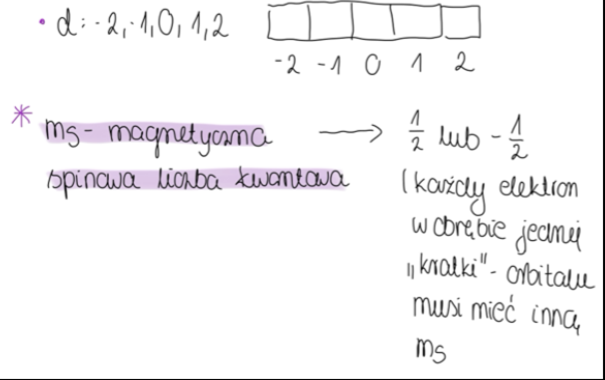 • d: -2, -1, 0, 1, 2
-2 -1 0 1 2
* ms - magnetyczna
spinowa liczba kwantowa
→ 1/2 lub - 1/2
(każdy elektron
w obrębie jednej
„kratki" - orbitalu
musi mieć inną
ms